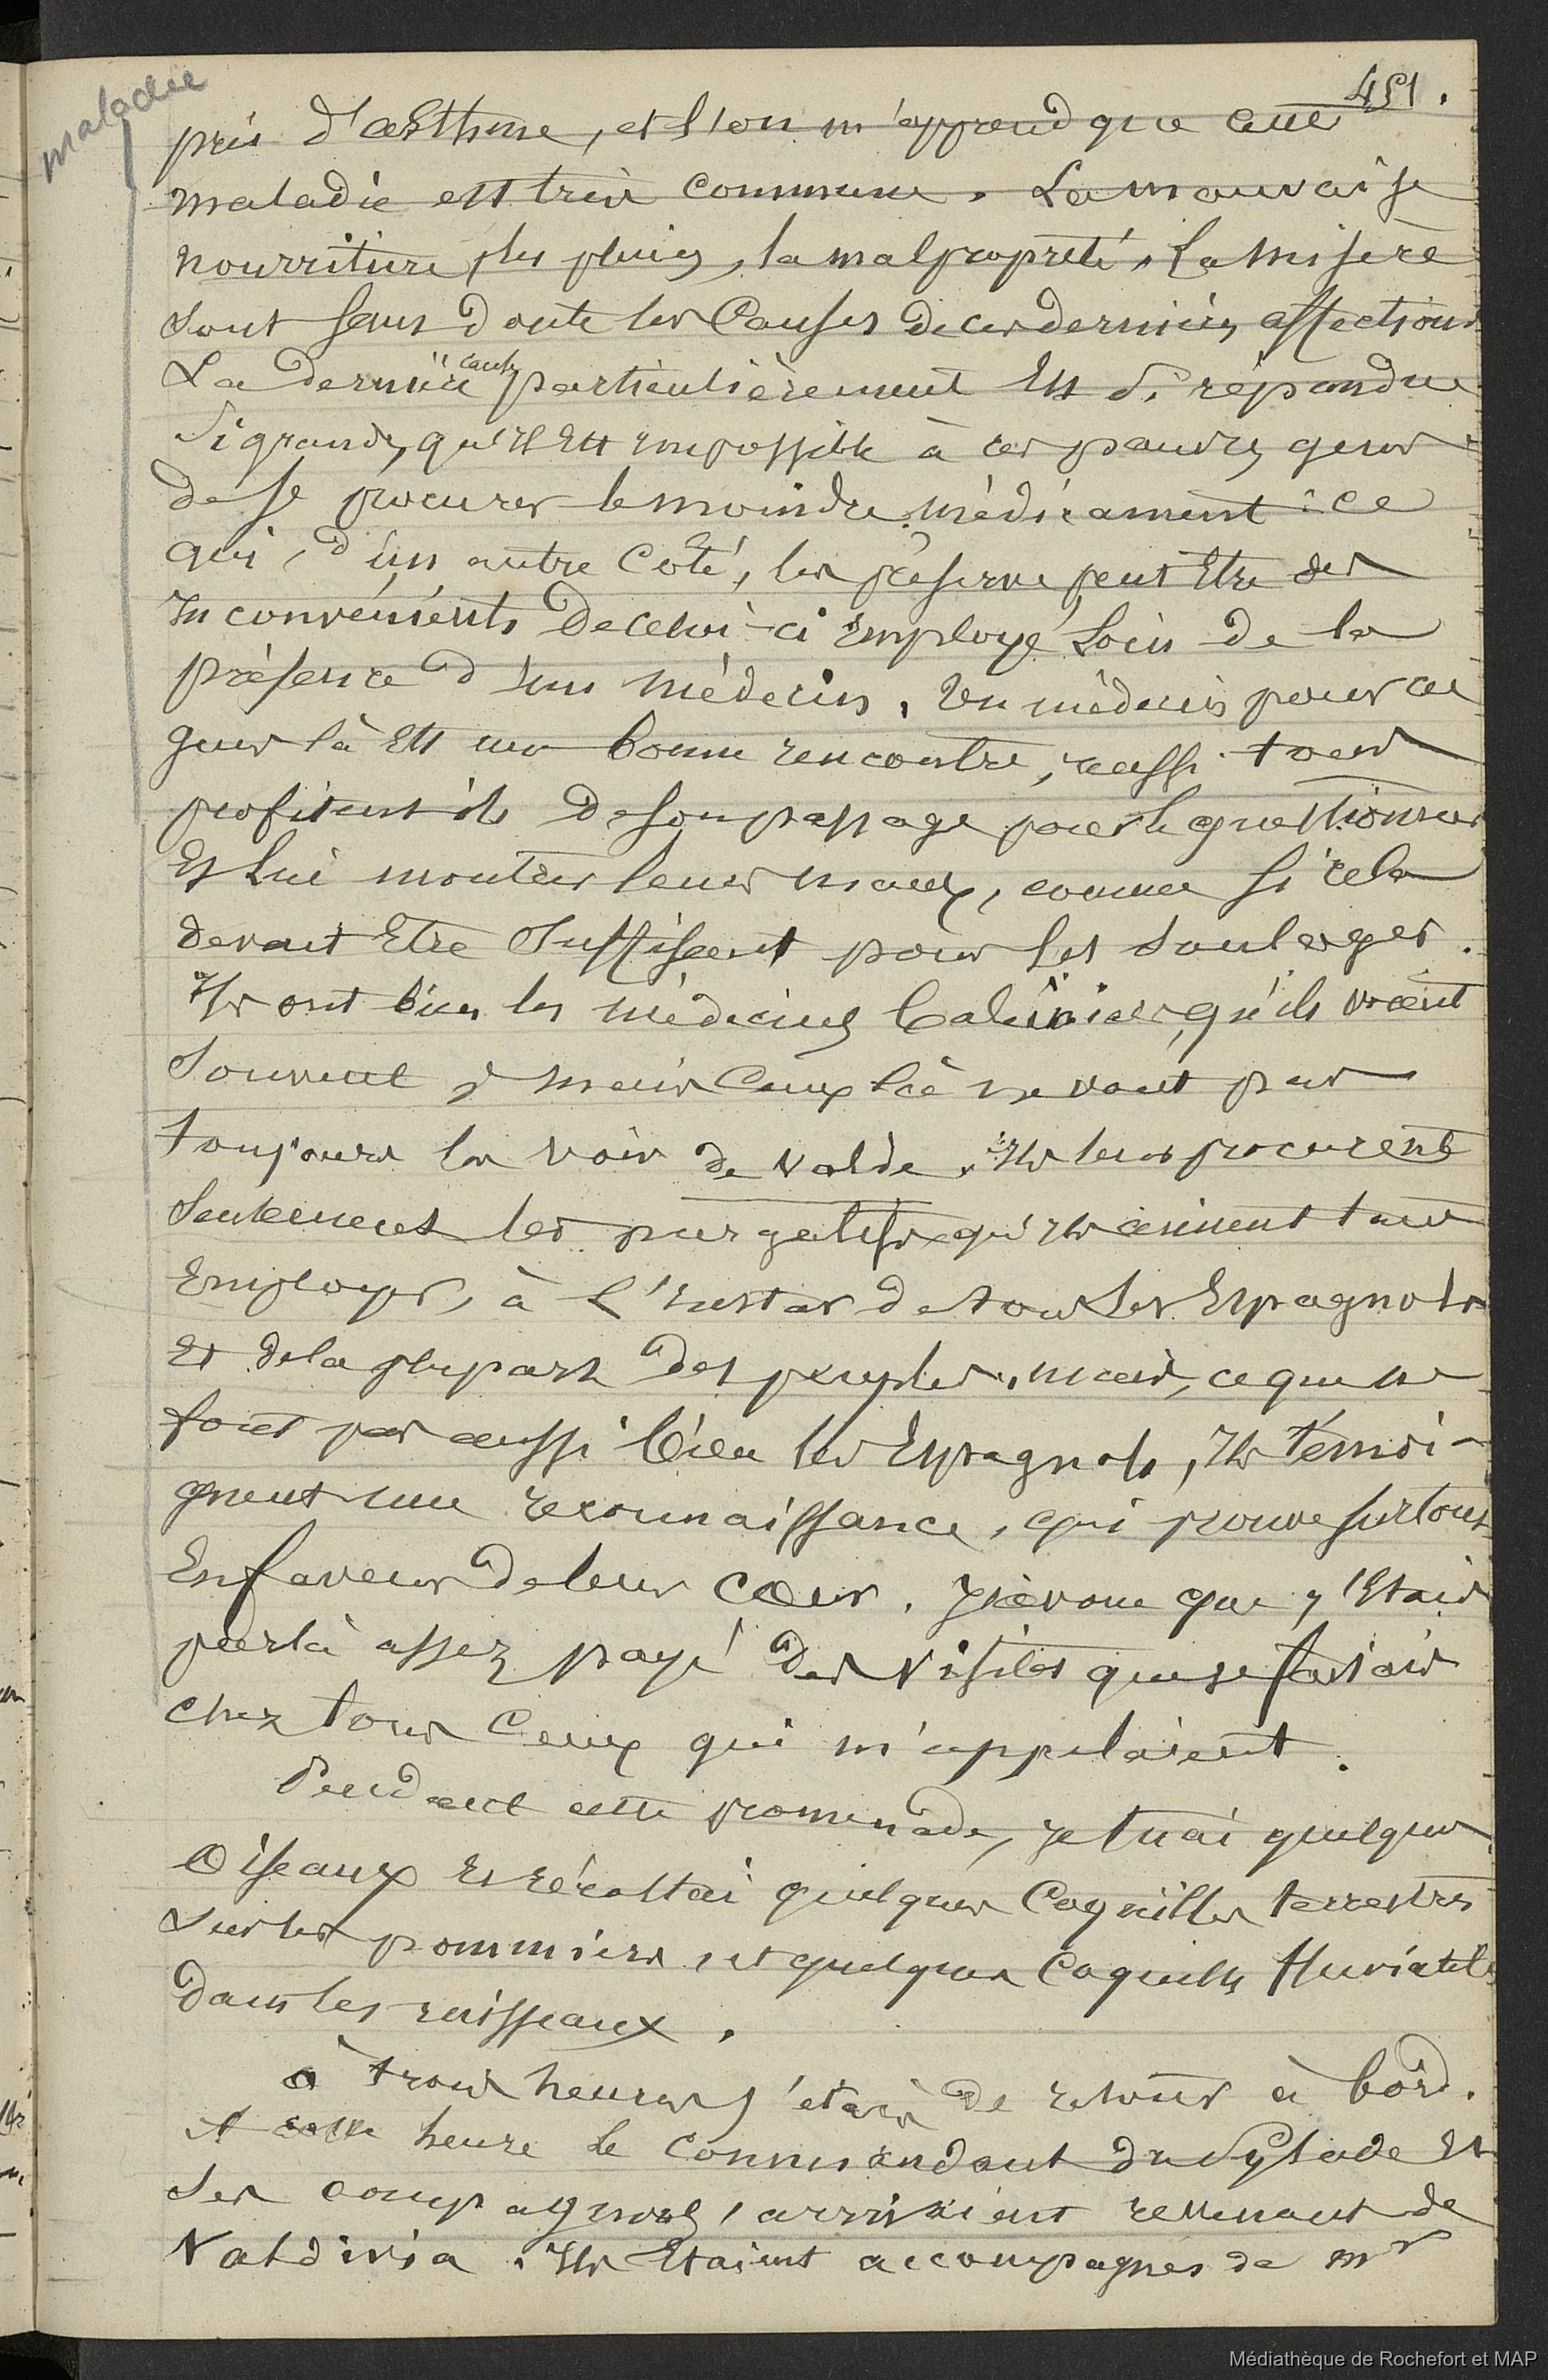 451.
maladie
pris d'asthme, et l'on m'apprend que cette
maladie est très commune. La mauvaise
nourriture, les pluies, la malpropreté, la misère
sont sans doute les causes de ces dernières affections
La dernière cause particulièrement est si répandue
si grande, qu'il est impossible à ces pauvres gens
de se procurer le moindre médicament : ce
qui, d'un autre coté, les préserve peut être des
inconvénients de celui-ci employé loin de la
présence d'un médecin. Un médecin pour ces
gens là est une bonne rencontre, aussi tous
profitent ils de son passage pour le questionner
et lui montrer leurs maux, comme si cela
devait être suffisant pour les soulager.
Ils ont bien les médecins baleiniers, qu'ils voient
souvent, mais ceux là ne vont pas
toujours les voir de Valde. Ils leur procurent
seulement les purgatifs qu'ils aiment tant
employer, à l'instar de tous les Espagnols
et de la plupart des peuples. mais, ce que ne
font pas aussi bien les Espagnols, ils témoi-
gnent une reconnaissance, qui prouve surtout
en faveur de leur cœur. J'avoue que j'étais
par là assez payé des visites que je faisais
chez tous ceux qui m'appelaient.
Pendant cette promenade, je tuai quelques
oiseaux et récoltai quelques coquilles terrestres
sur les pommiers, et quelques coquilles fluviatiles
dans les ruisseaux.
à trois heures j'étais de retour à bord.
A cette heure le commandant du Pylade et
ses compagnons, arrivaient revenant de
Valdivia. Ils étaient accompagnés de mr
Médiathèque de Rochefort et MAP